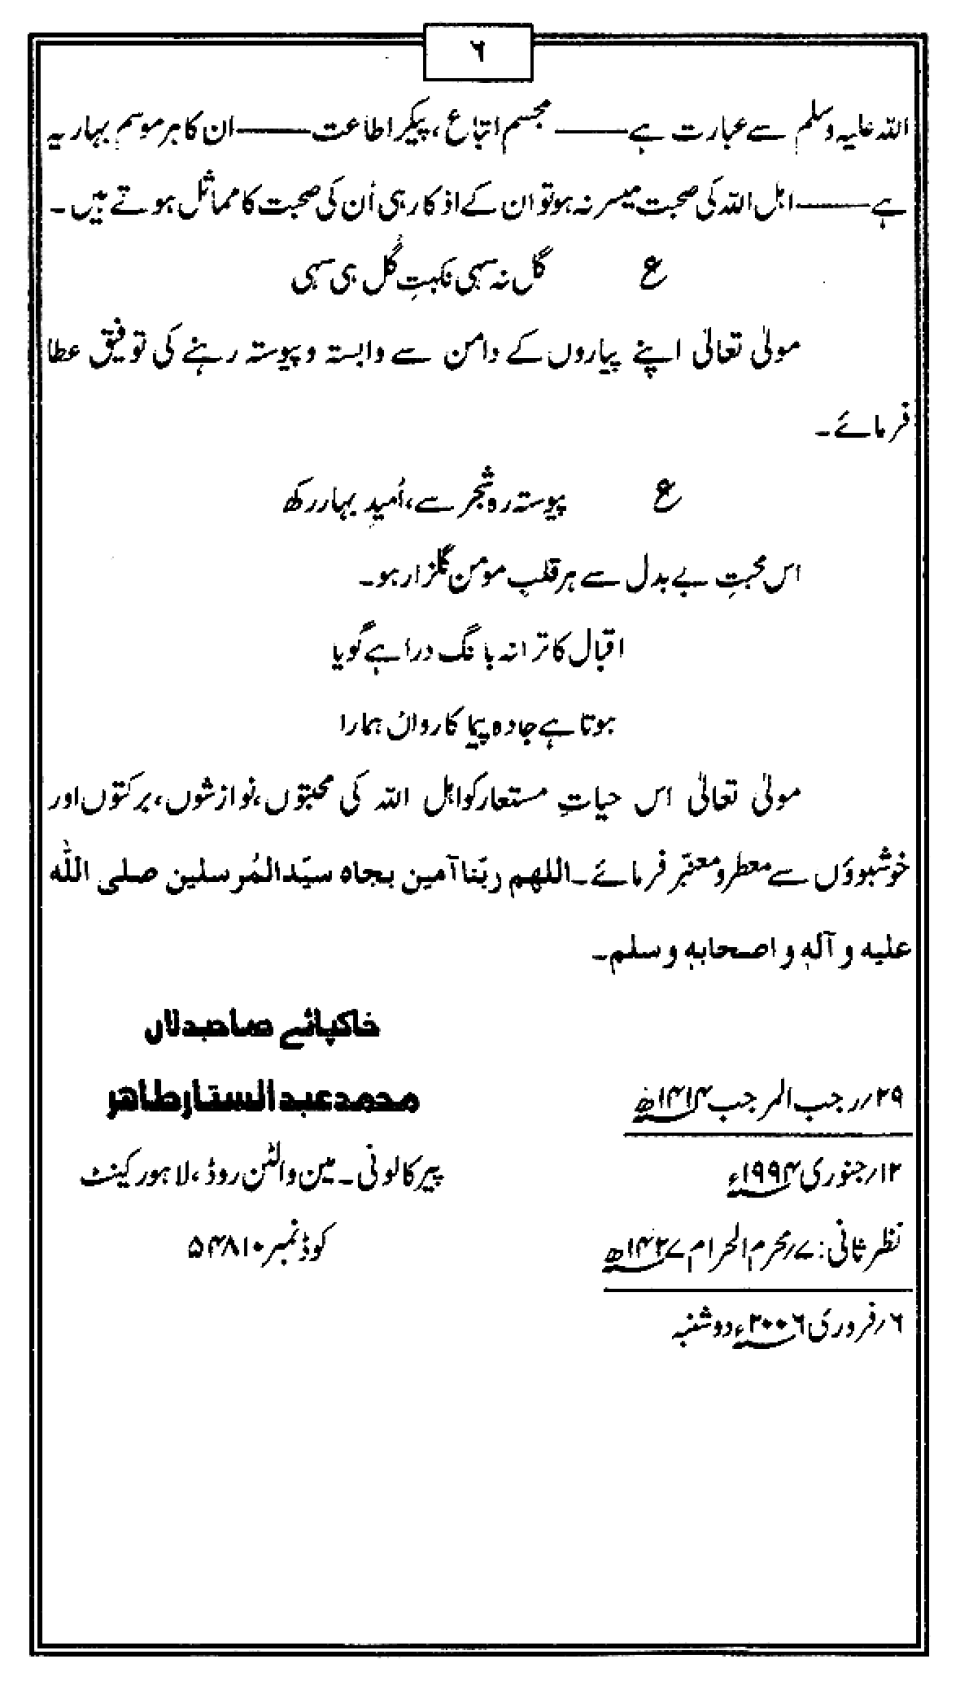 ۶
اللہ علیہ وسلم سے عبارت ہے —— مجسم اتباع، پیکر اطاعت —— ان کا ہر موسم بہاریہ
ہے —— اہل اللہ کی صحبت میسر نہ ہو تو ان کے اذکار ہی اُن کی صحبت کا مماثل ہوتے ہیں۔
ع گل نہ سہی نکہتِ گُل ہی سہی
مولیٰ تعالیٰ اپنے پیاروں کے دامن سے وابستہ و پیوستہ رہنے کی توفیق عطا
فرمائے۔
ع پیوستہ رہ شجر سے، اُمیدِ بہار رکھ
اس محبتِ بے بدل سے ہر قلبِ مؤمن گلزار ہو۔
اقبال کا ترانہ بانگ درا ہے گویا
ہوتا ہے جادہ پیما کارواں ہمارا
مولیٰ تعالیٰ اس حیاتِ مستعار کو اہل اللہ کی محبتوں، نوازشوں، برکتوں اور
خوشبوؤں سے معطر و معنبر فرمائے۔ اللھم ربّنا آمین بجاہ سیّد المُرسلین صلی اللّٰہ
علیہ و آلہٖ و اصحابہٖ وسلم۔
خاکپائے صاحبدلاں
۲۹؍رجب المرجب ۱۴۱۴ھ محمد عبدالستار طاہر
۱۲؍جنوری ۱۹۹۴ء پیر کالونی۔ مین والٹن روڈ، لاہور کینٹ
نظر ثانی: ۷؍محرم الحرام ۱۴۲۷ھ کوڈ نمبر ۵۴۸۱۰
۶؍فروری ۲۰۰۶ء دوشنبہ